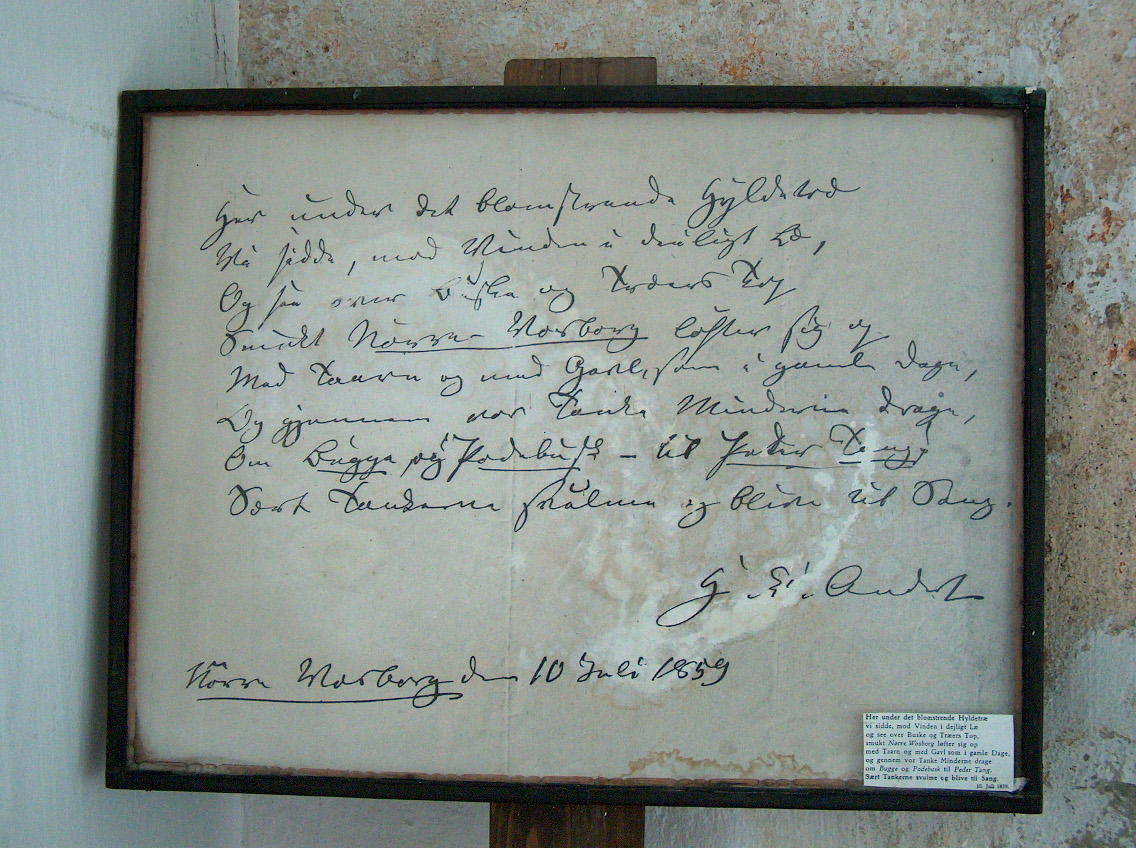 Her under det blomstrende Hyldetræ
Vi sidde, mod Vinden i deiligt Læ,
Og see over Buske og Træers Top
Smukt Nörre-Vosborg løfter sig op
Med Taarn og med Gavl, som i gamle Dage,
Og gjennem vor Tanke Minderne drage,
Om Bugge og Podebusk - til Peder Tang;
Sært Tankerne svulme og blive til Sang.
H. C. Anders
Nörre Vosborg den 10 Juli 1859
Her under det blomstrende Hyldetræ
vi sidde, mod Vinden i dejligt Læ
og see over Buske og Træers Top,
smukt Nørre Wosborg løfter sig op
med Taarn og med Gavl som i gamle Dage,
og gennem vor Tanke Minderne drage
om Bugge og Podebusk til Peder Tang.
Sært Tankerne svulme og blive til Sang.
10. Juli 1859.